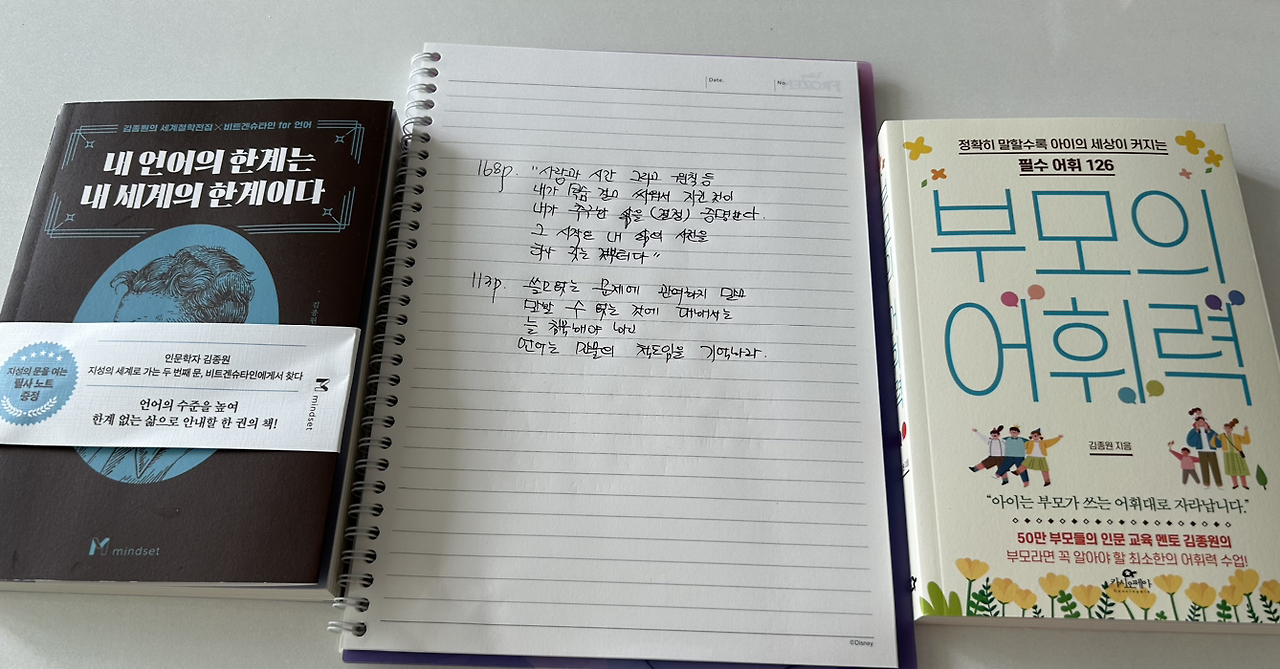 김종원의 세계철학전집×비트겐슈타인 for 언어
내 언어의 한계는
내 세계의 한계이다
김종원
지성의 문을 여는
필사 노트
증정
인문학자 김종원
지성의 세계로 가는 두 번째 문, 비트겐슈타인에게서 찾다
언어의 수준을 높여
한계 없는 삶으로 안내할 한 권의 책!
mindset
mindset
Date.
No.
FROZEN
168p. "사람과 시간 그리고 원칙 등
내가 목숨 걸고 싸워서 지킨 것이
내가 추구한 삶을 (결정) 증명한다.
그 시작은 내 삶의 사전을
하나 갖는 것부터다"
113p. 쓸모없는 문제에 관여하지 말고
말할 수 없는 것에 대해서는
늘 침묵해야 하니
언어는 만물의 척도임을 기억하라.
©Disney
정확히 말할수록 아이의 세상이 커지는
필수 어휘 126
부모의
어휘력
김종원 지음
"아이는 부모가 쓰는 어휘대로 자라납니다."
50만 부모들의 인문 교육 멘토 김종원의
부모라면 꼭 알아야 할 최소한의 어휘력 수업!
카시오페아
Cassiopeia